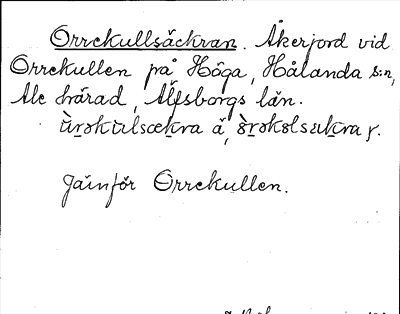 Orrekullsäckran. Åkerjord vid
Orrekullen på Höga, Hålanda s:n,
Ale härad, Älfsborgs län.
ùrəkulsækra ä, òrəkəlsækra f.
Jämför Orrekullen.